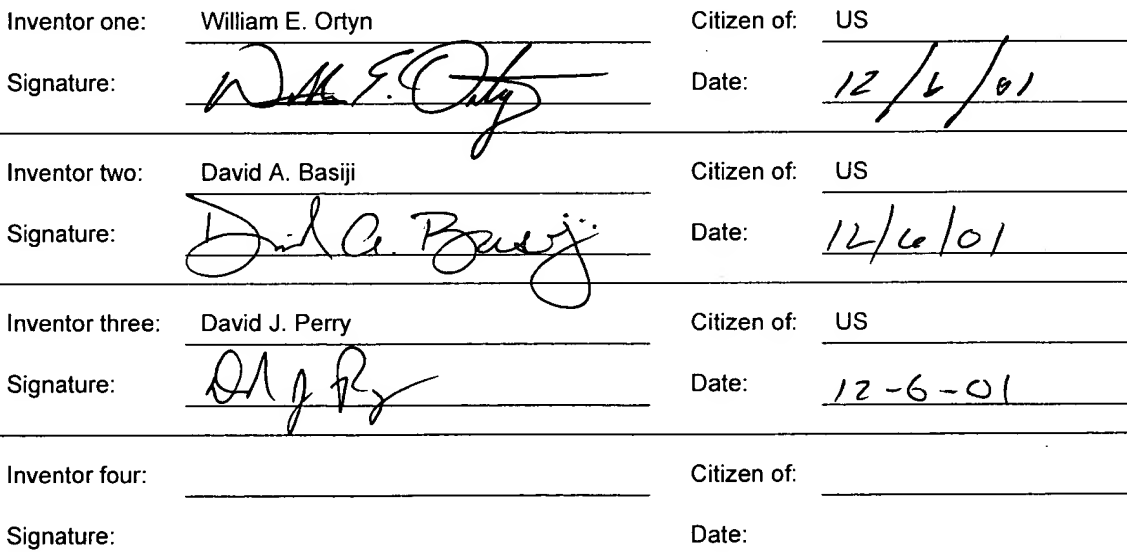 Inventor one: William E. Ortyn Citizen of: US
Signature: William E. Ortyn Date: 12/6/01
Inventor two: David A. Basiji Citizen of: US
Signature: David A. Basiji Date: 12/6/01
Inventor three: David J. Perry Citizen of: US
Signature: David J. Perry Date: 12-6-01
Inventor four: Citizen of:
Signature: Date: